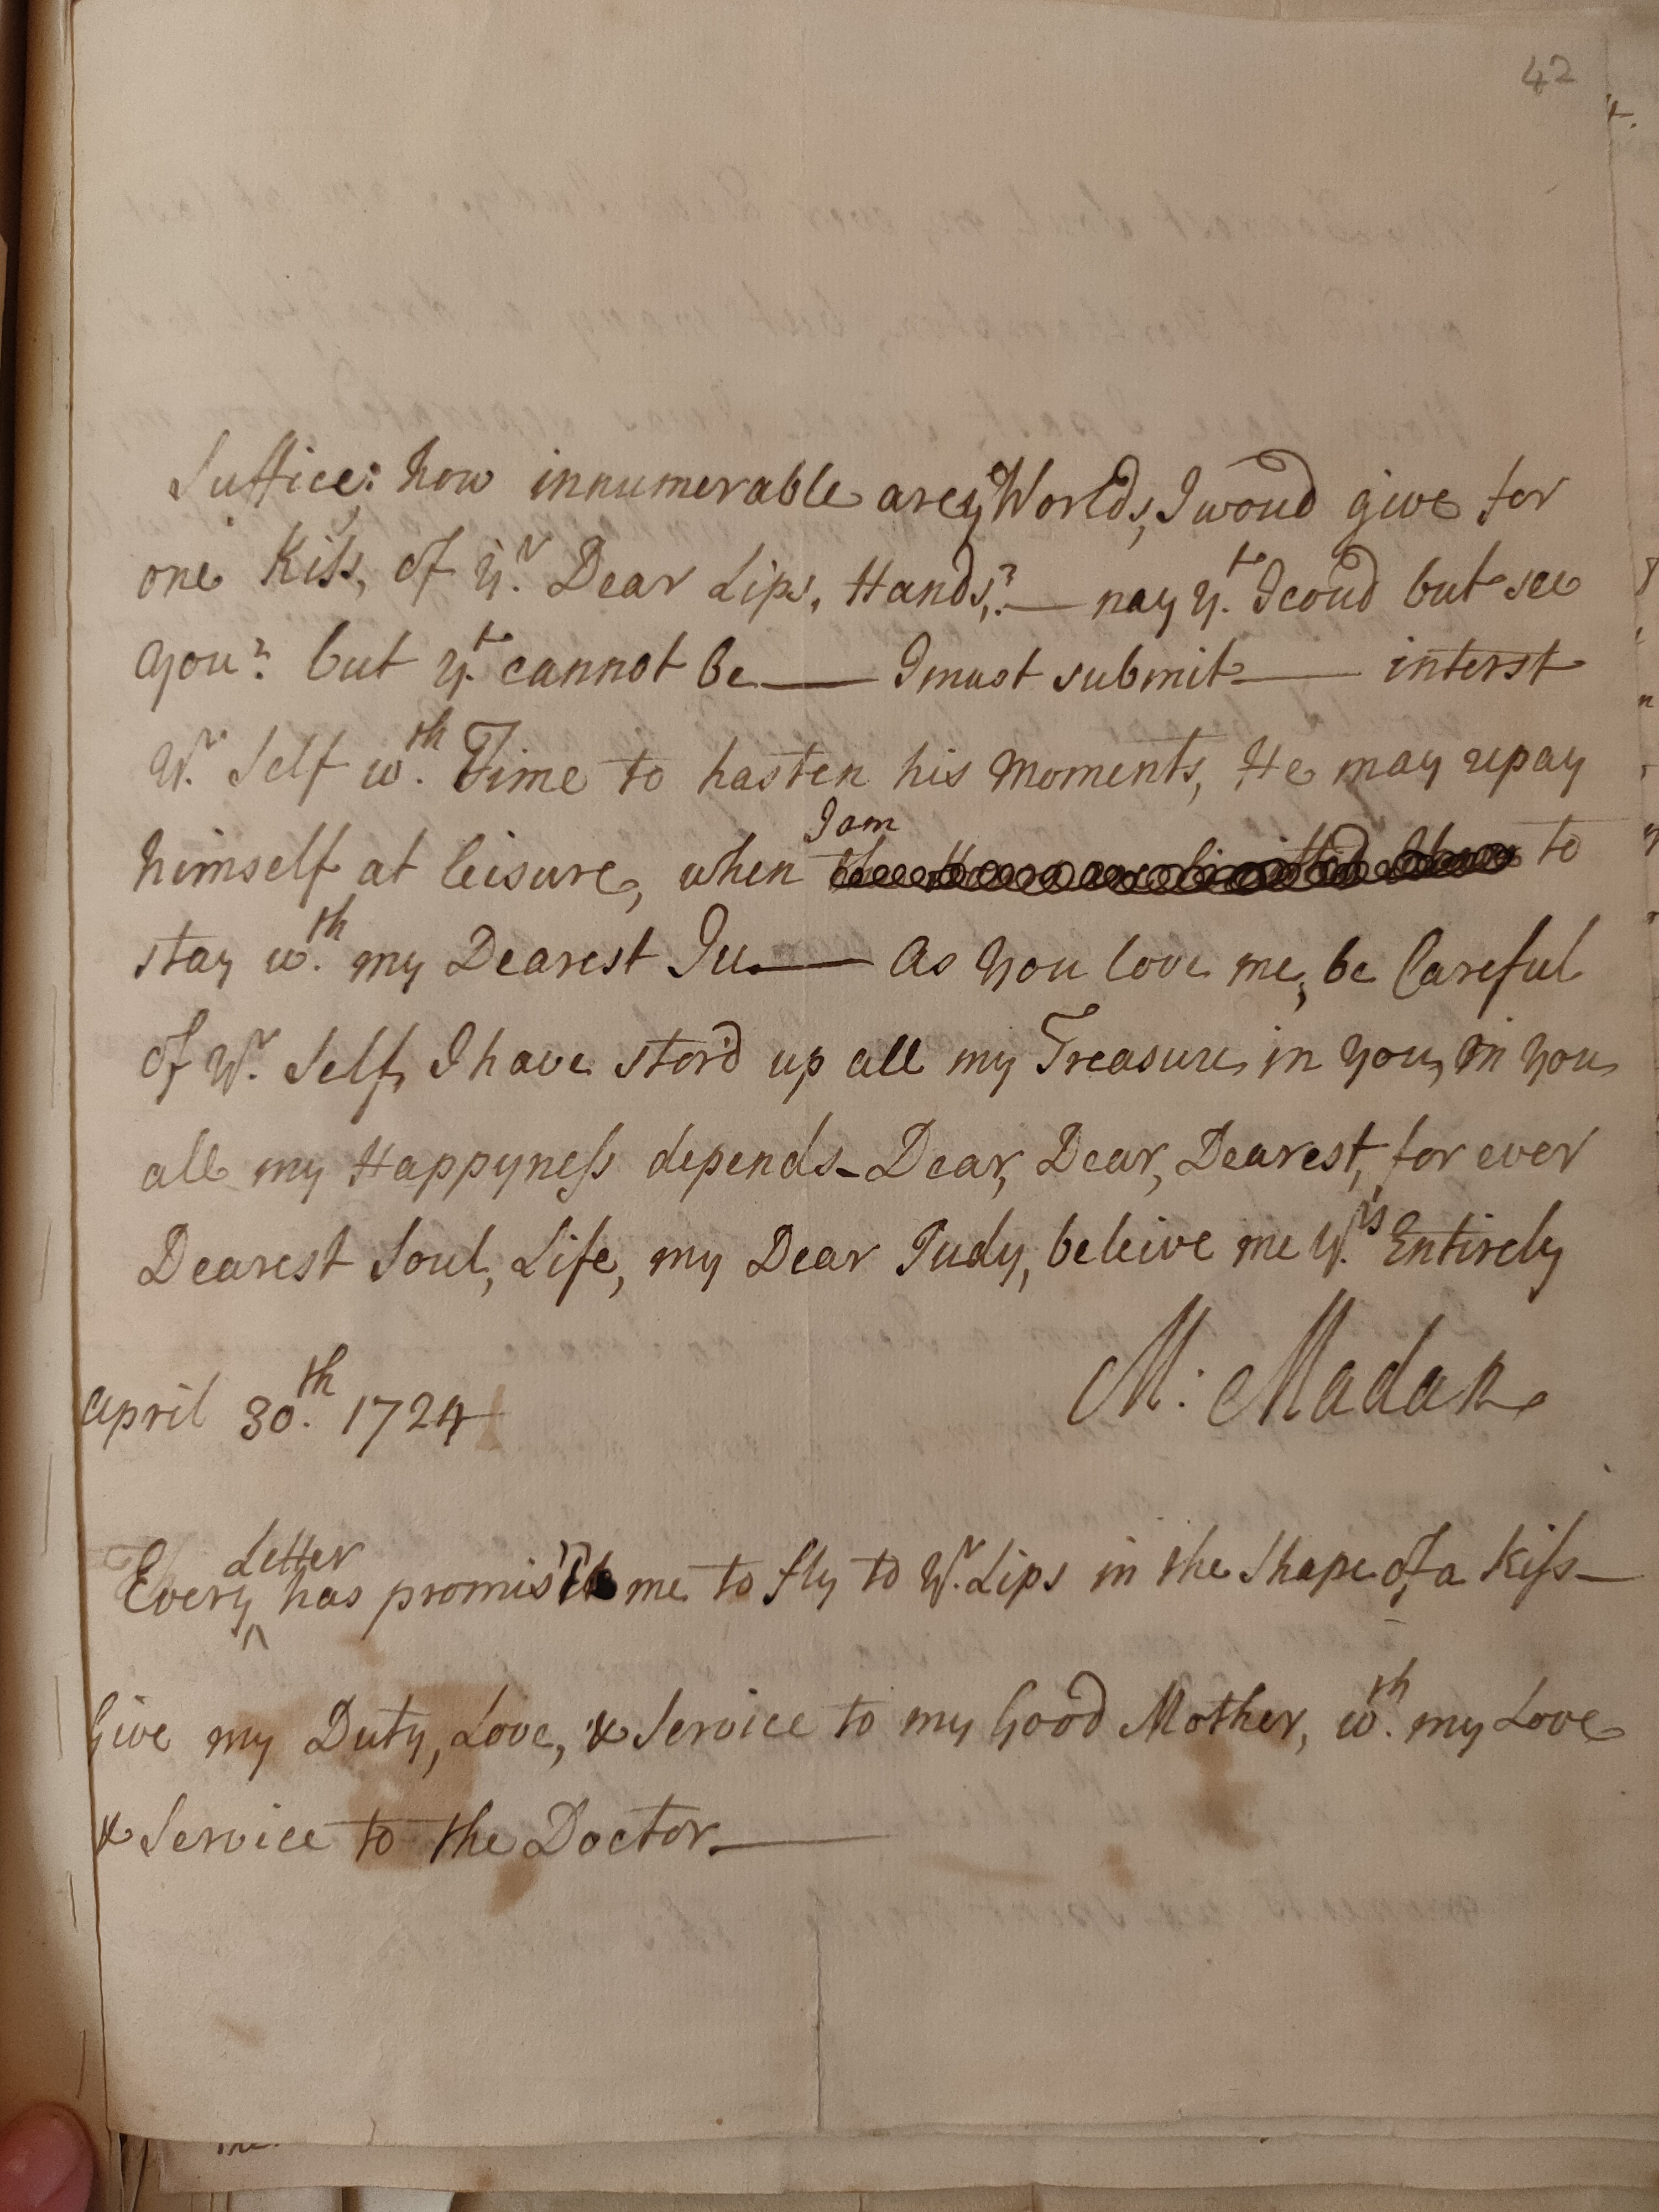 42
Suffice: how innumerable are yᵉ Worlds, I woud give for
one Kiss, of yʳ Dear Lips, Hands,? — nay yᵗ I coud but see
you? but yᵗ cannot be — I must submit — interst
yʳ Self wᵗʰ Time to hasten his moments, He may repay
himself at leisure, when I am to
stay wᵗʰ my Dearest Ju — As you love me, be Careful
of yʳ Self, I have stor'd up all my Treasure in you, in you
all my Happyness depends - Dear, Dear, Dearest, for ever
Dearest Soul, Life, my Dear Judy, beleive me yʳˢ Entirely
M: Madan
April 30ᵗʰ 1724
Every Letter has promis'd me to fly to yʳ Lips in the Shape of a Kiss —
Give my Duty, Love, & Service to my Good Mother, wᵗʰ my Love
& Service to the Doctor —